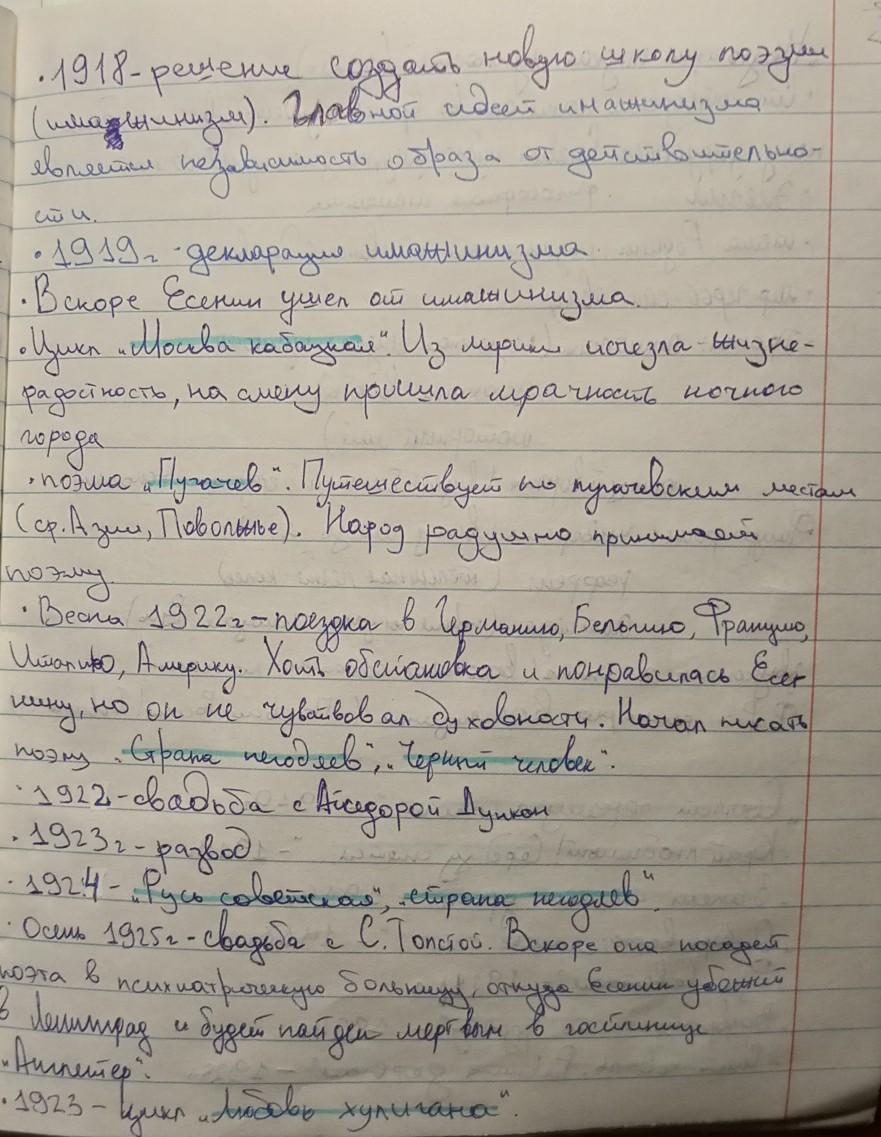 · 1918-решение создать новую школу поэзии
(имажинизм). Главной идеей имажинизма
является независимость образа от действительно-
сти.
· 1919г - декларация имажинизма.
· Вскоре Есенин ушел от имажинизма.
· Цикл „Москва кабацкая". Из лирики исчезла жизне-
радостность, на смену пришла мрачность ночного
города
· поэма „Пугачев". Путешествует по пугачевским местам
(ср. Азии, Поволжье). Народ радушно принимает
поэму.
· Весна 1922г - поездка в Германию, Бельгию, Францию,
Италию, Америку. Хоть обстановка и понравилась Есе-
нину, но он не чувствовал духовности. Начал писать
поэму „Страна негодяев", „Черный человек".
· 1922-свадьба с Айседорой Дункан
· 1923г - развод
· 1924 - „Русь советская", „страна негодяев".
· Осень 1925г - свадьба с С. Толстой. Вскоре она посадет
поэта в психиатрическую больницу, откуда Есенин убежит
в Ленинград и будет найден мертвым в гостинице
„Англетер".
· 1923 - цикл „Любовь хулигана".